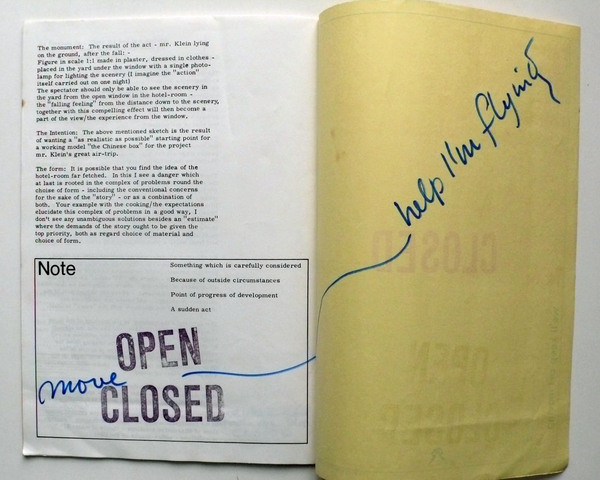 The monument: The result of the act - mr. Klein lying
on the ground, after the fall: -
Figure in scale 1:1 made in plaster, dressed in clothes -
placed in the yard under the window with a single photo-
lamp for lighting the scenery (I imagine the "action"
itself carried out on one night)
The spectator should only be able to see the scenery in
the yard from the open window in the hotel-room -
the "falling feeling" from the distance down to the scenery,
together with this compelling effect will then become a
part of the view/the experience from the window.
The Intention: The above mentioned sketch is the result
of wanting a "as realistic as possible" starting point for
a working model "the Chinese box" for the project
mr. Klein's great air-trip.
The form: It is possible that you find the idea of the
hotel-room far fetched. In this I see a danger which
at last is rooted in the complex of problems round the
choise of form - including the conventional concerns
for the sake of the "story" - or as a combination of
both. Your example with the cooking/the expectations
elucidate this complex of problems in a good way, I
don't see any unambiguous solutions besides an "estimate"
where the demands of the story ought to be given the
top priority, both as regard choice of material and
choice of form.
Note
Something which is carefully considered
Because of outside circumstances
Point of progress of development
A sudden act
OPEN
move
CLOSED
help I'm flying
CLOSED
OPEN
CLOSED